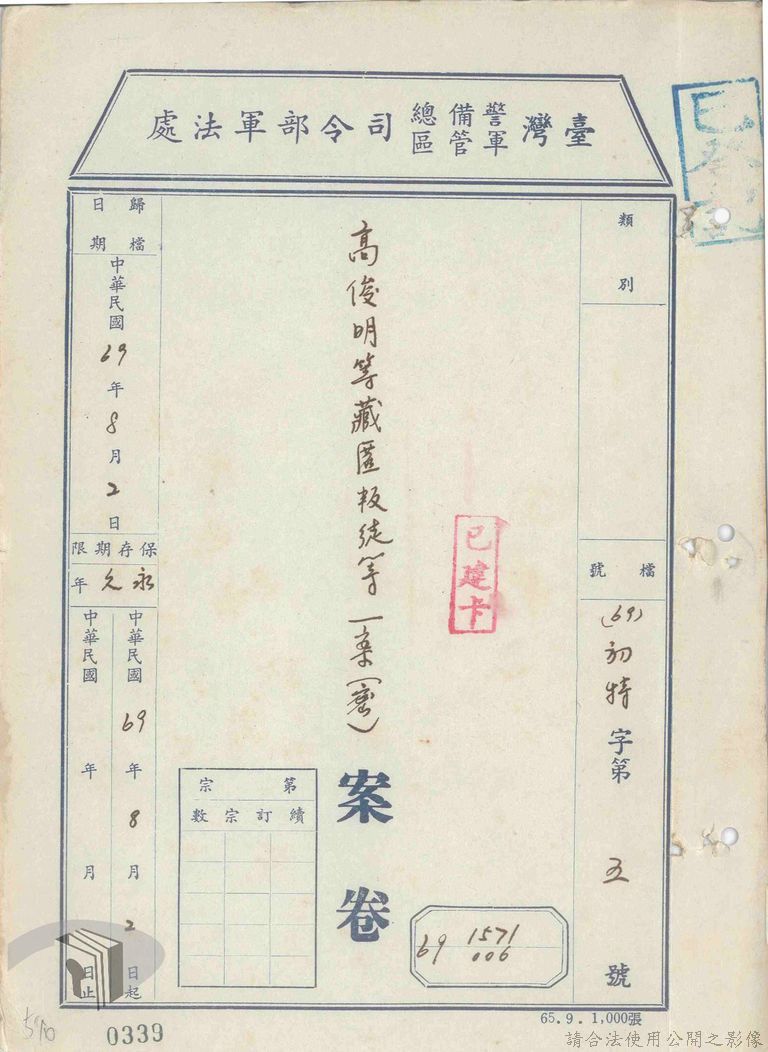 臺灣警備軍管總區司令部軍法處
類別
檔號
(69)初特字第五號
高俊明等藏匿叛徒等一案(密)
案卷
已建卡
69 1571
006
第宗
續訂宗數
歸檔日期
中華民國69年8月2日
保存期限
永久年
中華民國69年8月2日起
中華民國 年 月 日止
0339
65.9.1,000張
請合法使用公開之影像